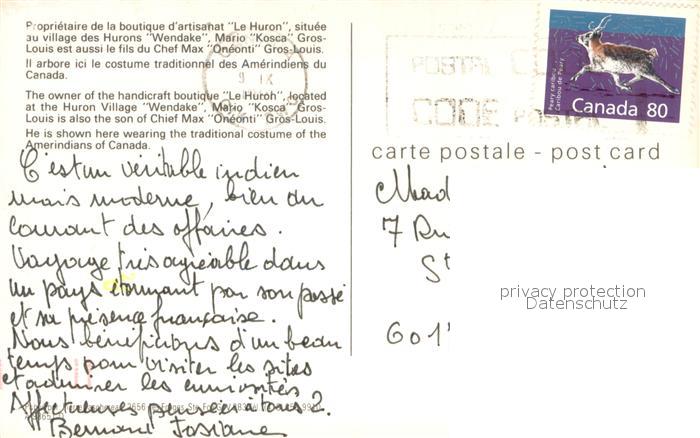 Propriétaire de la boutique d'artisanat "Le Huron", située
au village des Hurons "Wendake", Mario "Kosca" Gros-
Louis est aussi le fils du Chef Max "Onéonti" Gros-Louis.
Il arbore ici le costume traditionnel des Amérindiens du
Canada.
The owner of the handicraft boutique "Le Huron", located
at the Huron Village "Wendake", Mario "Kosca" Gros-
Louis is also the son of Chef Max "Onéonti" Gros-Louis.
He is shown here wearing the traditional costume of the
Amerindians of Canada.
C'est un véritable indien
mais moderne, bien au
courant des affaires.
Voyage très agréable dans
un pays étonnant par son passé
et sa présence française.
Nous bénéficions d'un beau
temps pour visiter les sites
et admirer les curiosités
Affectueuses pensées à tous 2.
Bernard
IX
POSTAL CO
CODE POSTAL
Peary caribou
Caribou de Peary
Canada 80
carte postale - post card
Mad
7 Ru
St
6011
privacy protection
Datenschutz